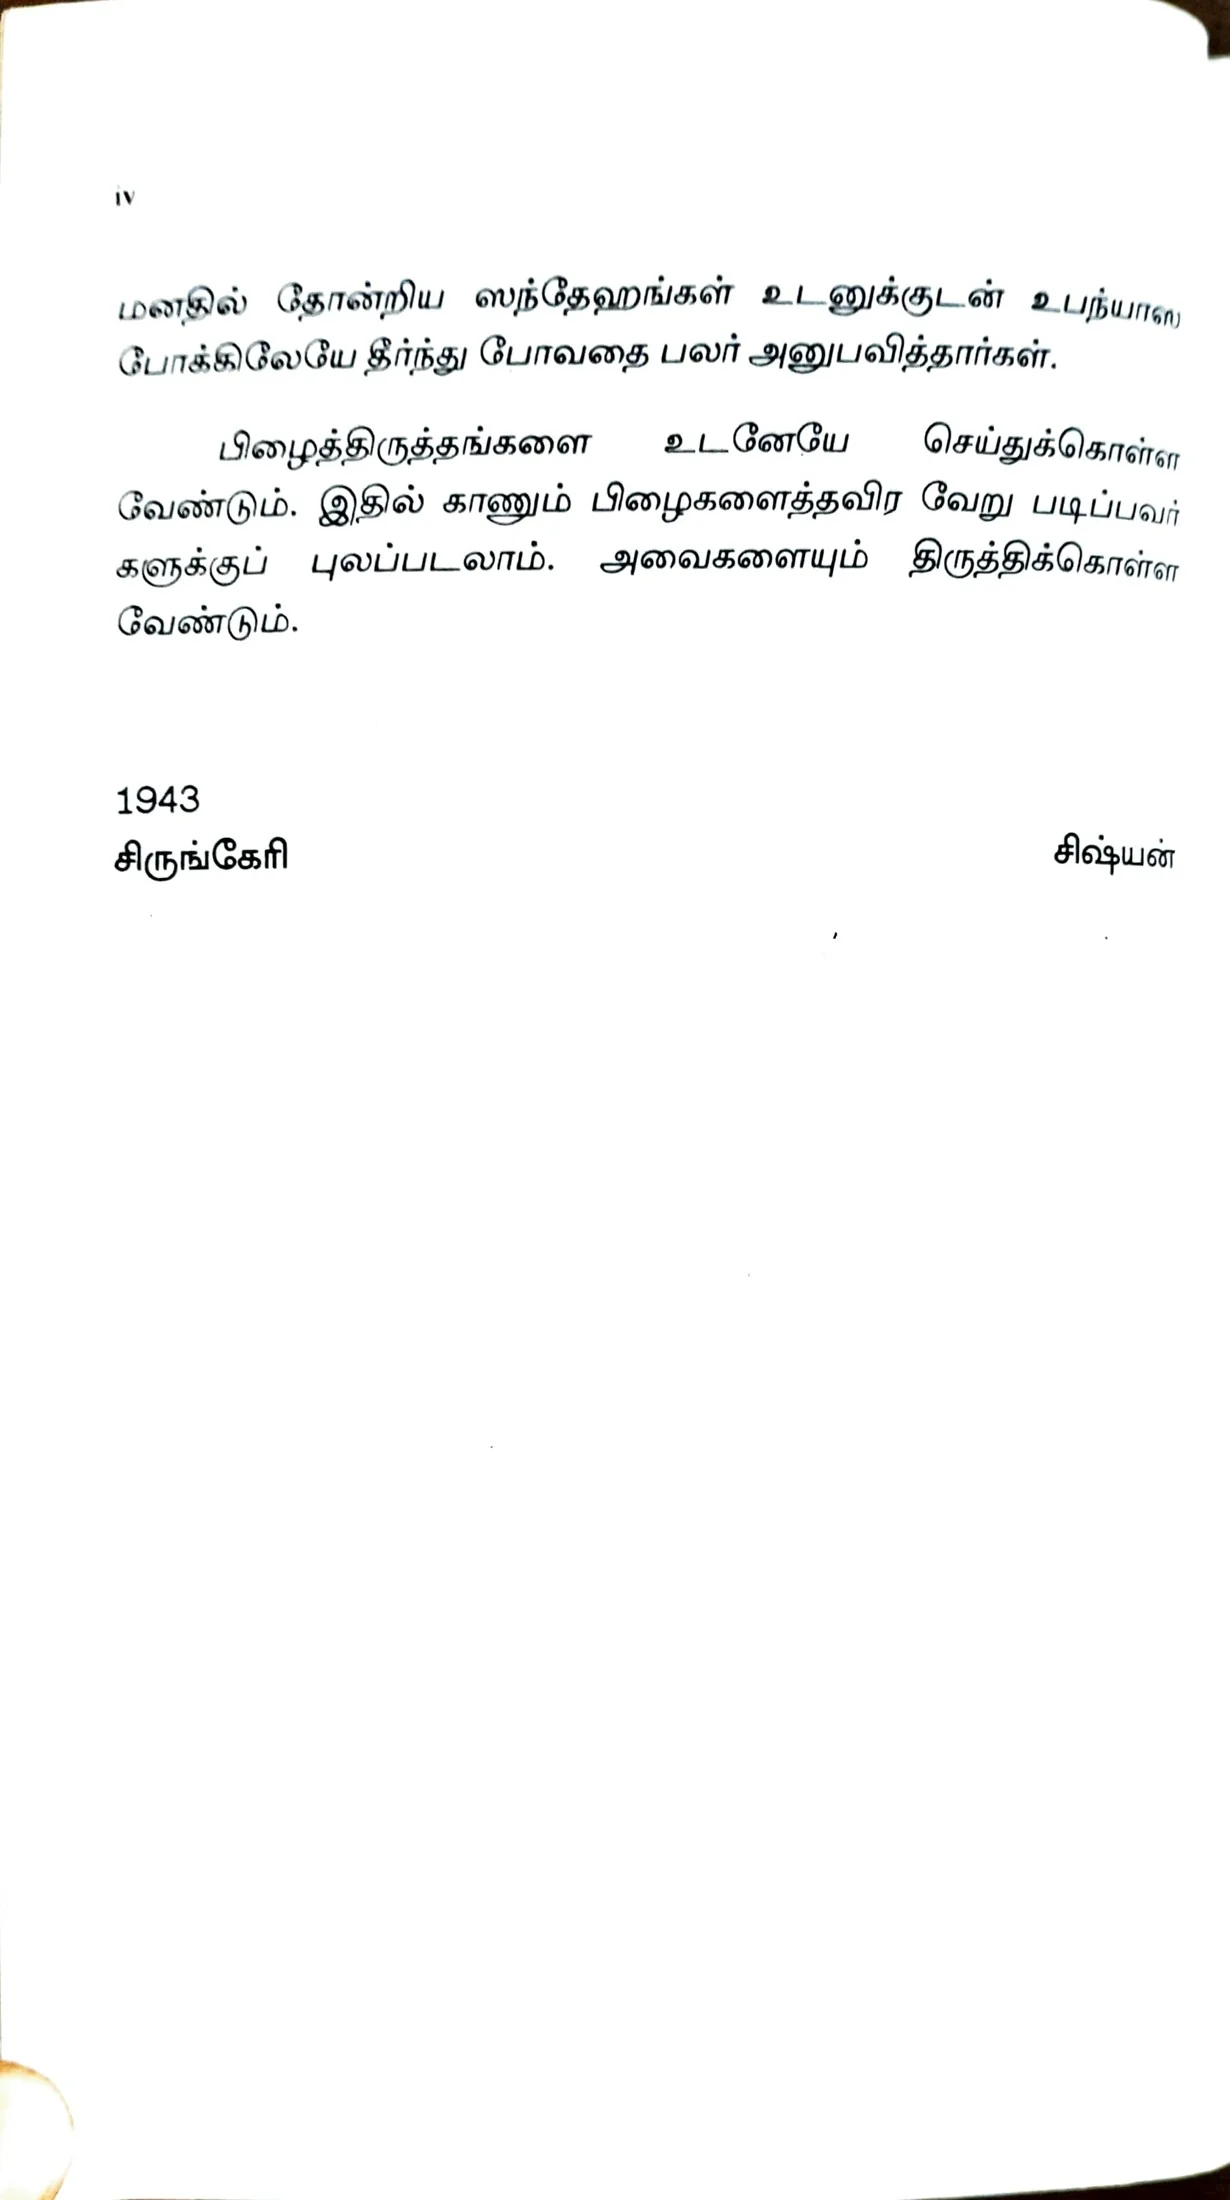 iv
மனதில் தோன்றிய ஸந்தேஹங்கள் உடனுக்குடன் உபந்யாஸ
போக்கிலேயே தீர்ந்து போவதை பலர் அனுபவித்தார்கள்.
பிழைத்திருத்தங்களை உடனேயே செய்துக்கொள்ள
வேண்டும். இதில் காணும் பிழைகளைத்தவிர வேறு படிப்பவர்
களுக்குப் புலப்படலாம். அவைகளையும் திருத்திக்கொள்ள
வேண்டும்.
1943
சிருங்கேரி சிஷ்யன்